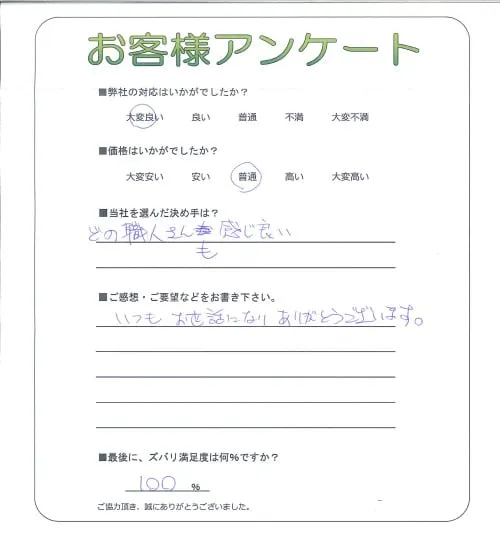 お客様アンケート
■弊社の対応はいかがでしたか？
大変良い 良い 普通 不満 大変不満
■価格はいかがでしたか？
大変安い 安い 普通 高い 大変高い
■当社を選んだ決め手は？
どの職人さんも感じ良い
■ご感想・ご要望などをお書き下さい。
いつも お世話になり ありがとうございます。
■最後に、ズバリ満足度は何％ですか？
100 %
ご協力頂き、誠にありがとうございました。